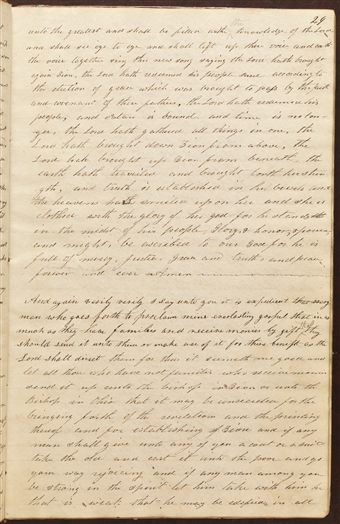 29
unto the greatest and shall be filled with the knowledge of the Lord
and shall see eye to eye and shall lift up their voice and with
the voice together sing this new song saying the Lord hath brought
again Zion, the Lord hath redeemed his people according to
the election of grace which was brought to pass by the faith
and covenant of their fathers, the Lord hath redeemed his
people, and satan is bound and time is no lon-
ger, the Lord hath gathered all things in one, the
Lord hath brought down Zion from above, the
Lord hath brought up Zion from beneath the
earth hath travailed and brought forth her stren-
gth, and truth is established in her bowels and
the heavens hath smiled upon her and she is
clothed with the glory of her god for he stands
in the midst of his people, Glory & honor, & power
and might, be ascribed to our God for he is
full of mercy, justice grace and truth, and peace
forever and ever amen
And again verily verily I say unto you it is expedient that every
man who goes forth to proclaim mine everlasting gospel that in as
much as they have families and receive monies by gift they
should send it unto them or make use of it for their benefit as the
Lord shall direct them for thus it seemeth me good and
let all those who have not families who receive monies
send it up unto the bishop in Zion or unto the
bishop in Ohio that it may be consecrated for the
bringing forth of the revelations and the printing
thereof and for establishing Zion and if any
man shall give unto any of you a coat or a suit
take the old and cast it unto the poor and go
your way rejoicing and if any man among you
be strong in the spirit let him take with him he
that is weak that he may be edified in all